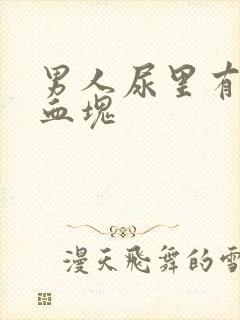 男人尿里有
血块
漫天飞舞的雪